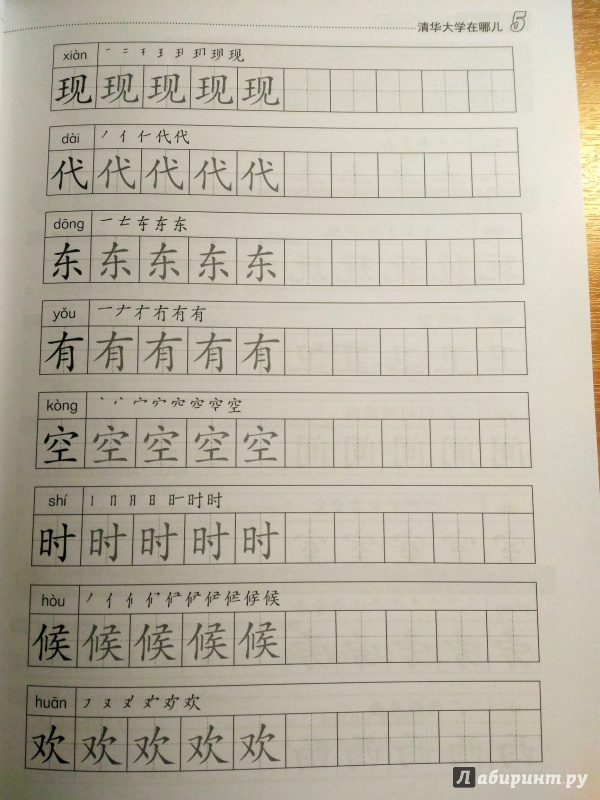 清华大学在哪儿 5
xiàn 一 二 干 王 现
现 现 现 现 现
dài 丿 亻 代 代
代 代 代 代 代
dōng 一 东 东
东 东 东 东 东
yǒu 一 ナ 有 有
有 有 有 有 有
kòng 丶 宀 空
空 空 空 空 空
shí 丨 冂 日 日 时 时
时 时 时 时 时
hòu 丿 亻 候
候 候 候 候 候
huān 又 欢
欢 欢 欢 欢 欢
Лабиринт.ру